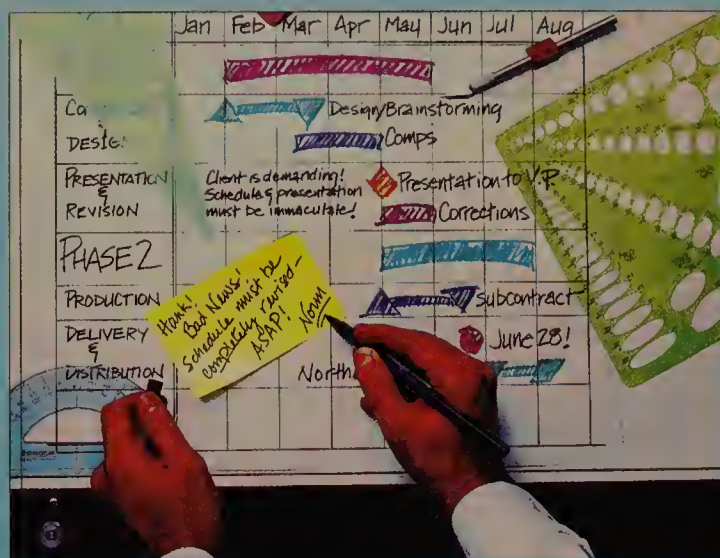 Jan Feb Mar Apr May Jun Jul Aug
Design/Brainstorming
Comps
PRESENTATION
&
REVISION
Client is demanding!
Schedule & presentation
must be immaculate!
Presentation to V.P.
Corrections
PHASE 2
PRODUCTION
Subcontract
DELIVERY
&
DISTRIBUTION
June 28!
North
Hank!
Bad News!
Schedule must be
completely revised-
ASAP!
Norm